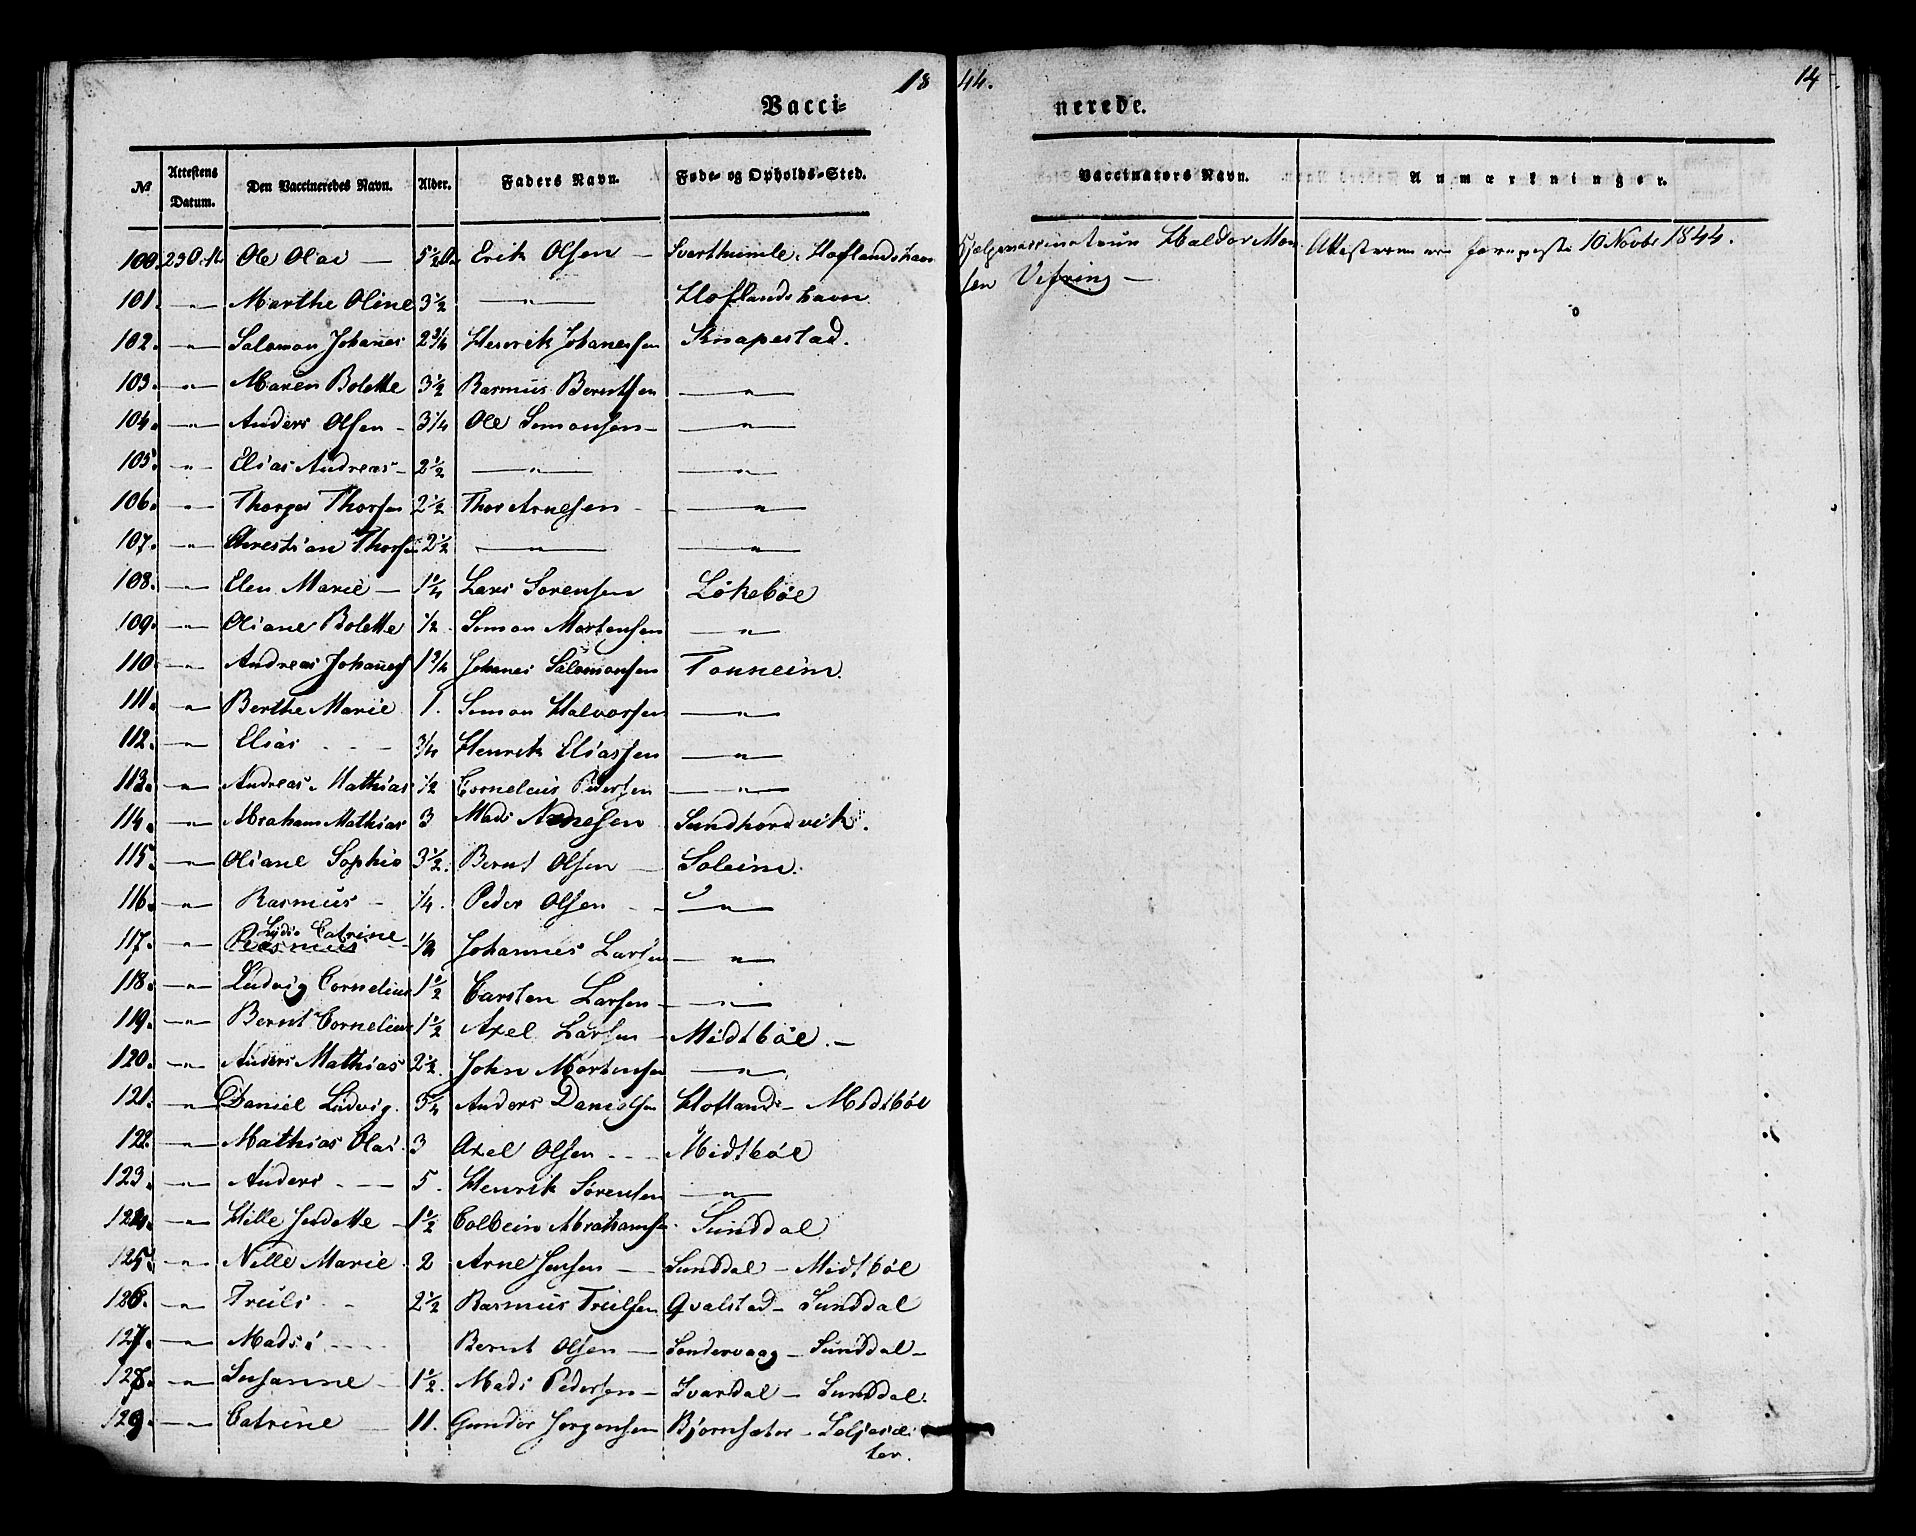 18 44. 14
Vacci- nerede.
No Attestens Datum. Den Vaccineredes Navn. Alder. Faders Navn. Føde- og Opholds-Sted. Vaccinators Navn. Anmærkninger.
100. 23 Ole Olai — 5½ Erik Olsen — Svarthumle. Hoflandshavn Hjelpevaccinateur Haldor Mon Attesterne ere 10 Novbr 1844.
101. — " — Marthe Oline 3½ — " — Hoflandshavn sen Vefring —
102. — " — Salomon Johanes 2¾ Henrik Johanessen Knapestad.
103. — " — Maren Bolette 3½ Rasmus Berntsen — " —
104. — " — Anders Olsen - 3¼ Ole Simonsen - — " —
105. — " — Elias Andreas - 2½ — " — — " —
106. — " — Thorger Thorsen 2½ Thor Arnesen - — " —
107. — " — Christian Thorsen 2½ — " — — " —
108. — " — Elen Marie — 1¼ Lars Sørensen Løkebøe
109. — " — Oliane Bolette ½ Simon Mortensen — " —
110. — " — Andreas Johannes 1¾ Johanes Salomonsen Tonneim.
111. — " — Berthe Marie 1. Simon Halvorsen — " —
112. — " — Elias - - - ¾ Henrik Eliassen — " —
113. — " — Andreas Mathias ½ Cornelius Pedersen — " —
114. — " — Abraham Mathias 3 Mads Sundhordvik.
115. — " — Oliane Sophie 3½. Bernt Olsen — Soleim.
116. — " — Rasmus - ¼. Peder Olsen - - — " —
Catrine
117. — " — Rasmus - Johannes Larsen — " —
118. — " — Ludvig Cornelius 1½ Carsten Larsen - — " —
119. — " — Bernt Cornelius 1½ Axel Larsen - Midtbøe. -
120. — " — Anders Mathias 2½. John Mortensen — " —
121. — " — Daniel Ludvig. Anders Danielsen Hofland - Midtbøe
122. — " — Mathias Olai 3 Axel Olsen - - - Midtbøe
123. — " — Anders - - - 5. Henrik Sørensen — " —
124. — " — Hille - 1½ Colbein Abrahamsen. Sunddal
125. — " — Nille Marie - 2 Arne Jensen — Sunddal - Midtbøe
126. — " — Truls - - 2½ Rasmus Trulsen Qvalstad - Sunddal
127. — " — Mads - - - - Bernt Olsen — Søndervaag - Sunddal -
128. — " — Susanne - 1½. Mads Pedersen - Svardal - Sunddal.
129. — " — Catrine — 11. Gunder Jørgensen Bjørnsæter - Leljesæ-
ter.